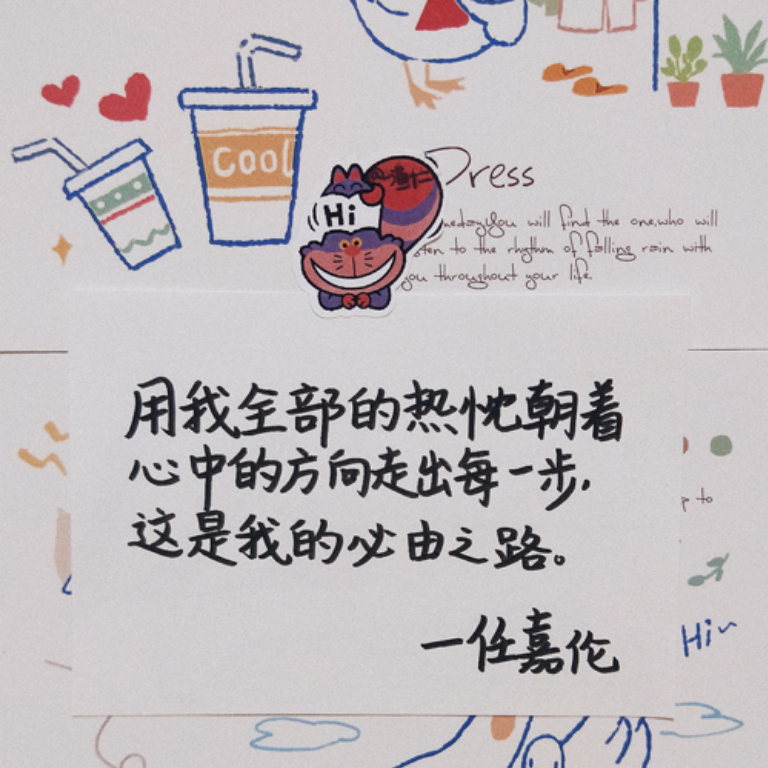 Cool
Dress
Hi
you will find the one,who will
to the rhythm of falling rain with
you throughout your life.
用我全部的热忱朝着
心中的方向走出每一步,
这是我的必由之路。
to
Hi~
一任嘉伦